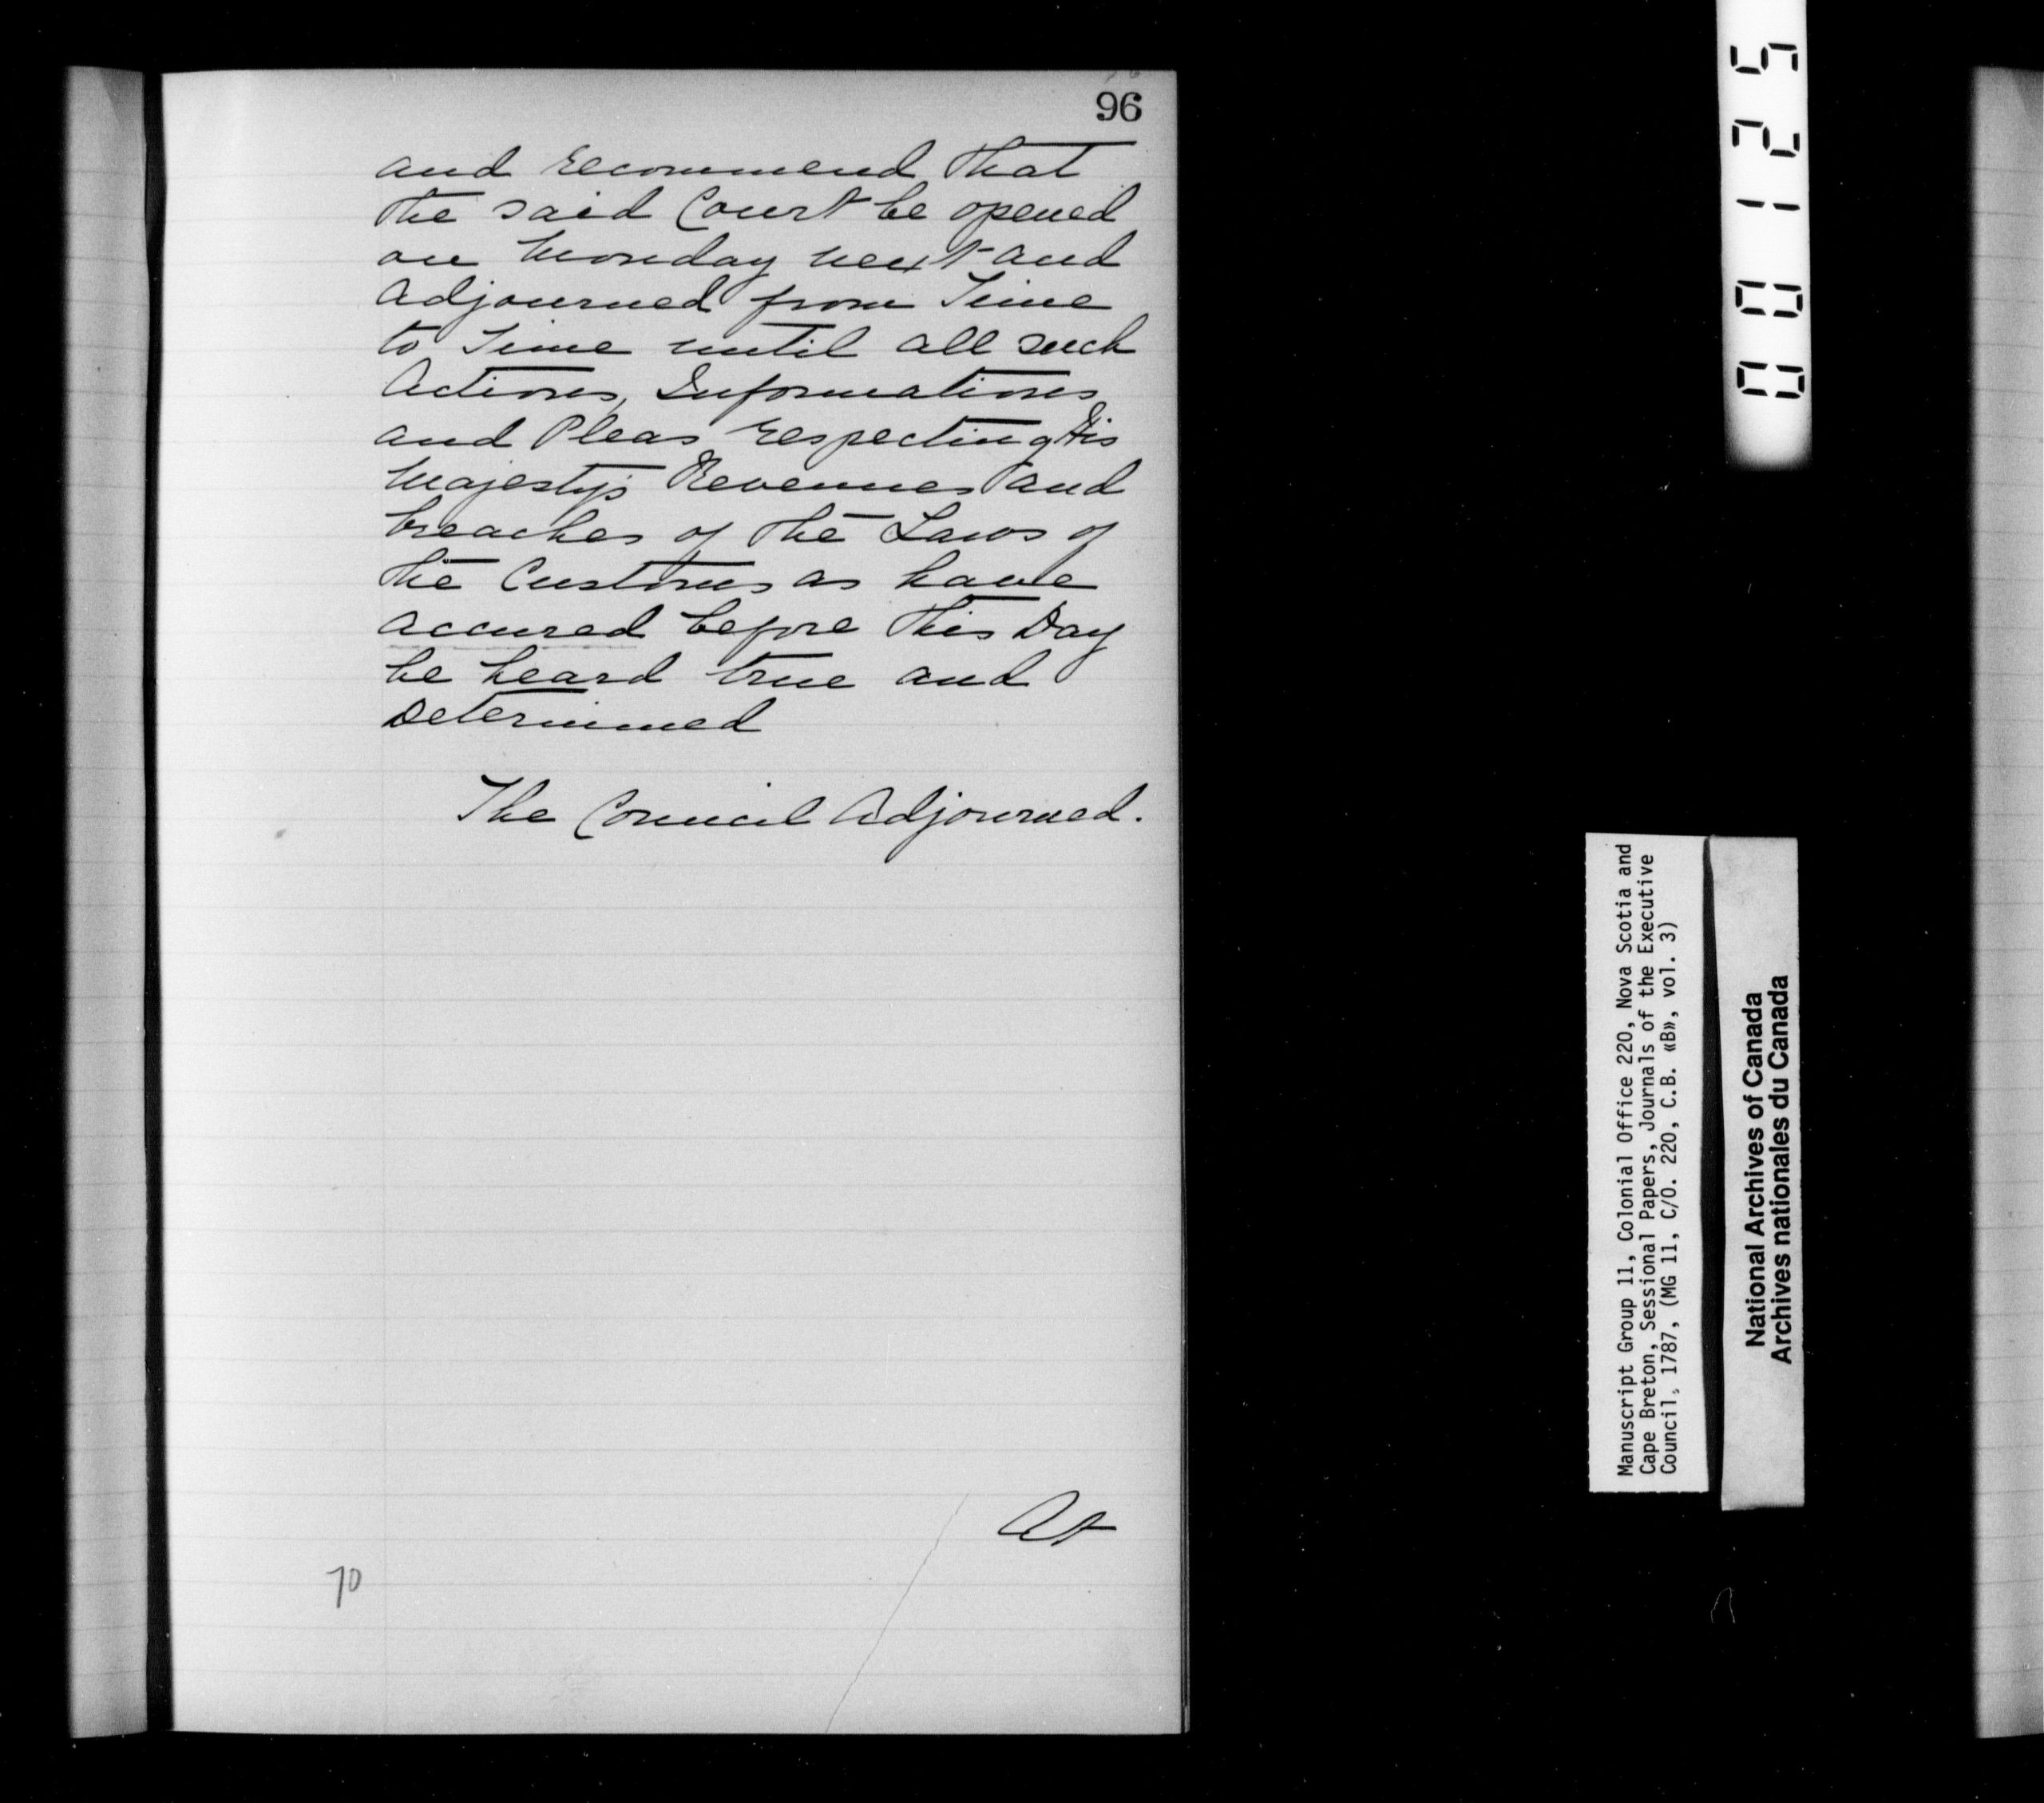 96
and recommend that
the said Court be opened
on Monday next and
Adjourned from Time
to Time until all such
Actions, Informations
and Pleas respecting His
Majesty's Revennes and
breaches of the Laws of
the Customs as have
accured before this Day
be heard true and
Determined
The Council Adjourned.
At
70
00125
Manuscript Group 11, Colonial Office 220, Nova Scotia and
Cape Breton, Sessional Papers, Journals of the Executive
Council, 1787, (MG 11, C/O. 220, C.B. «B», vol. 3)
National Archives of Canada
Archives nationales du Canada